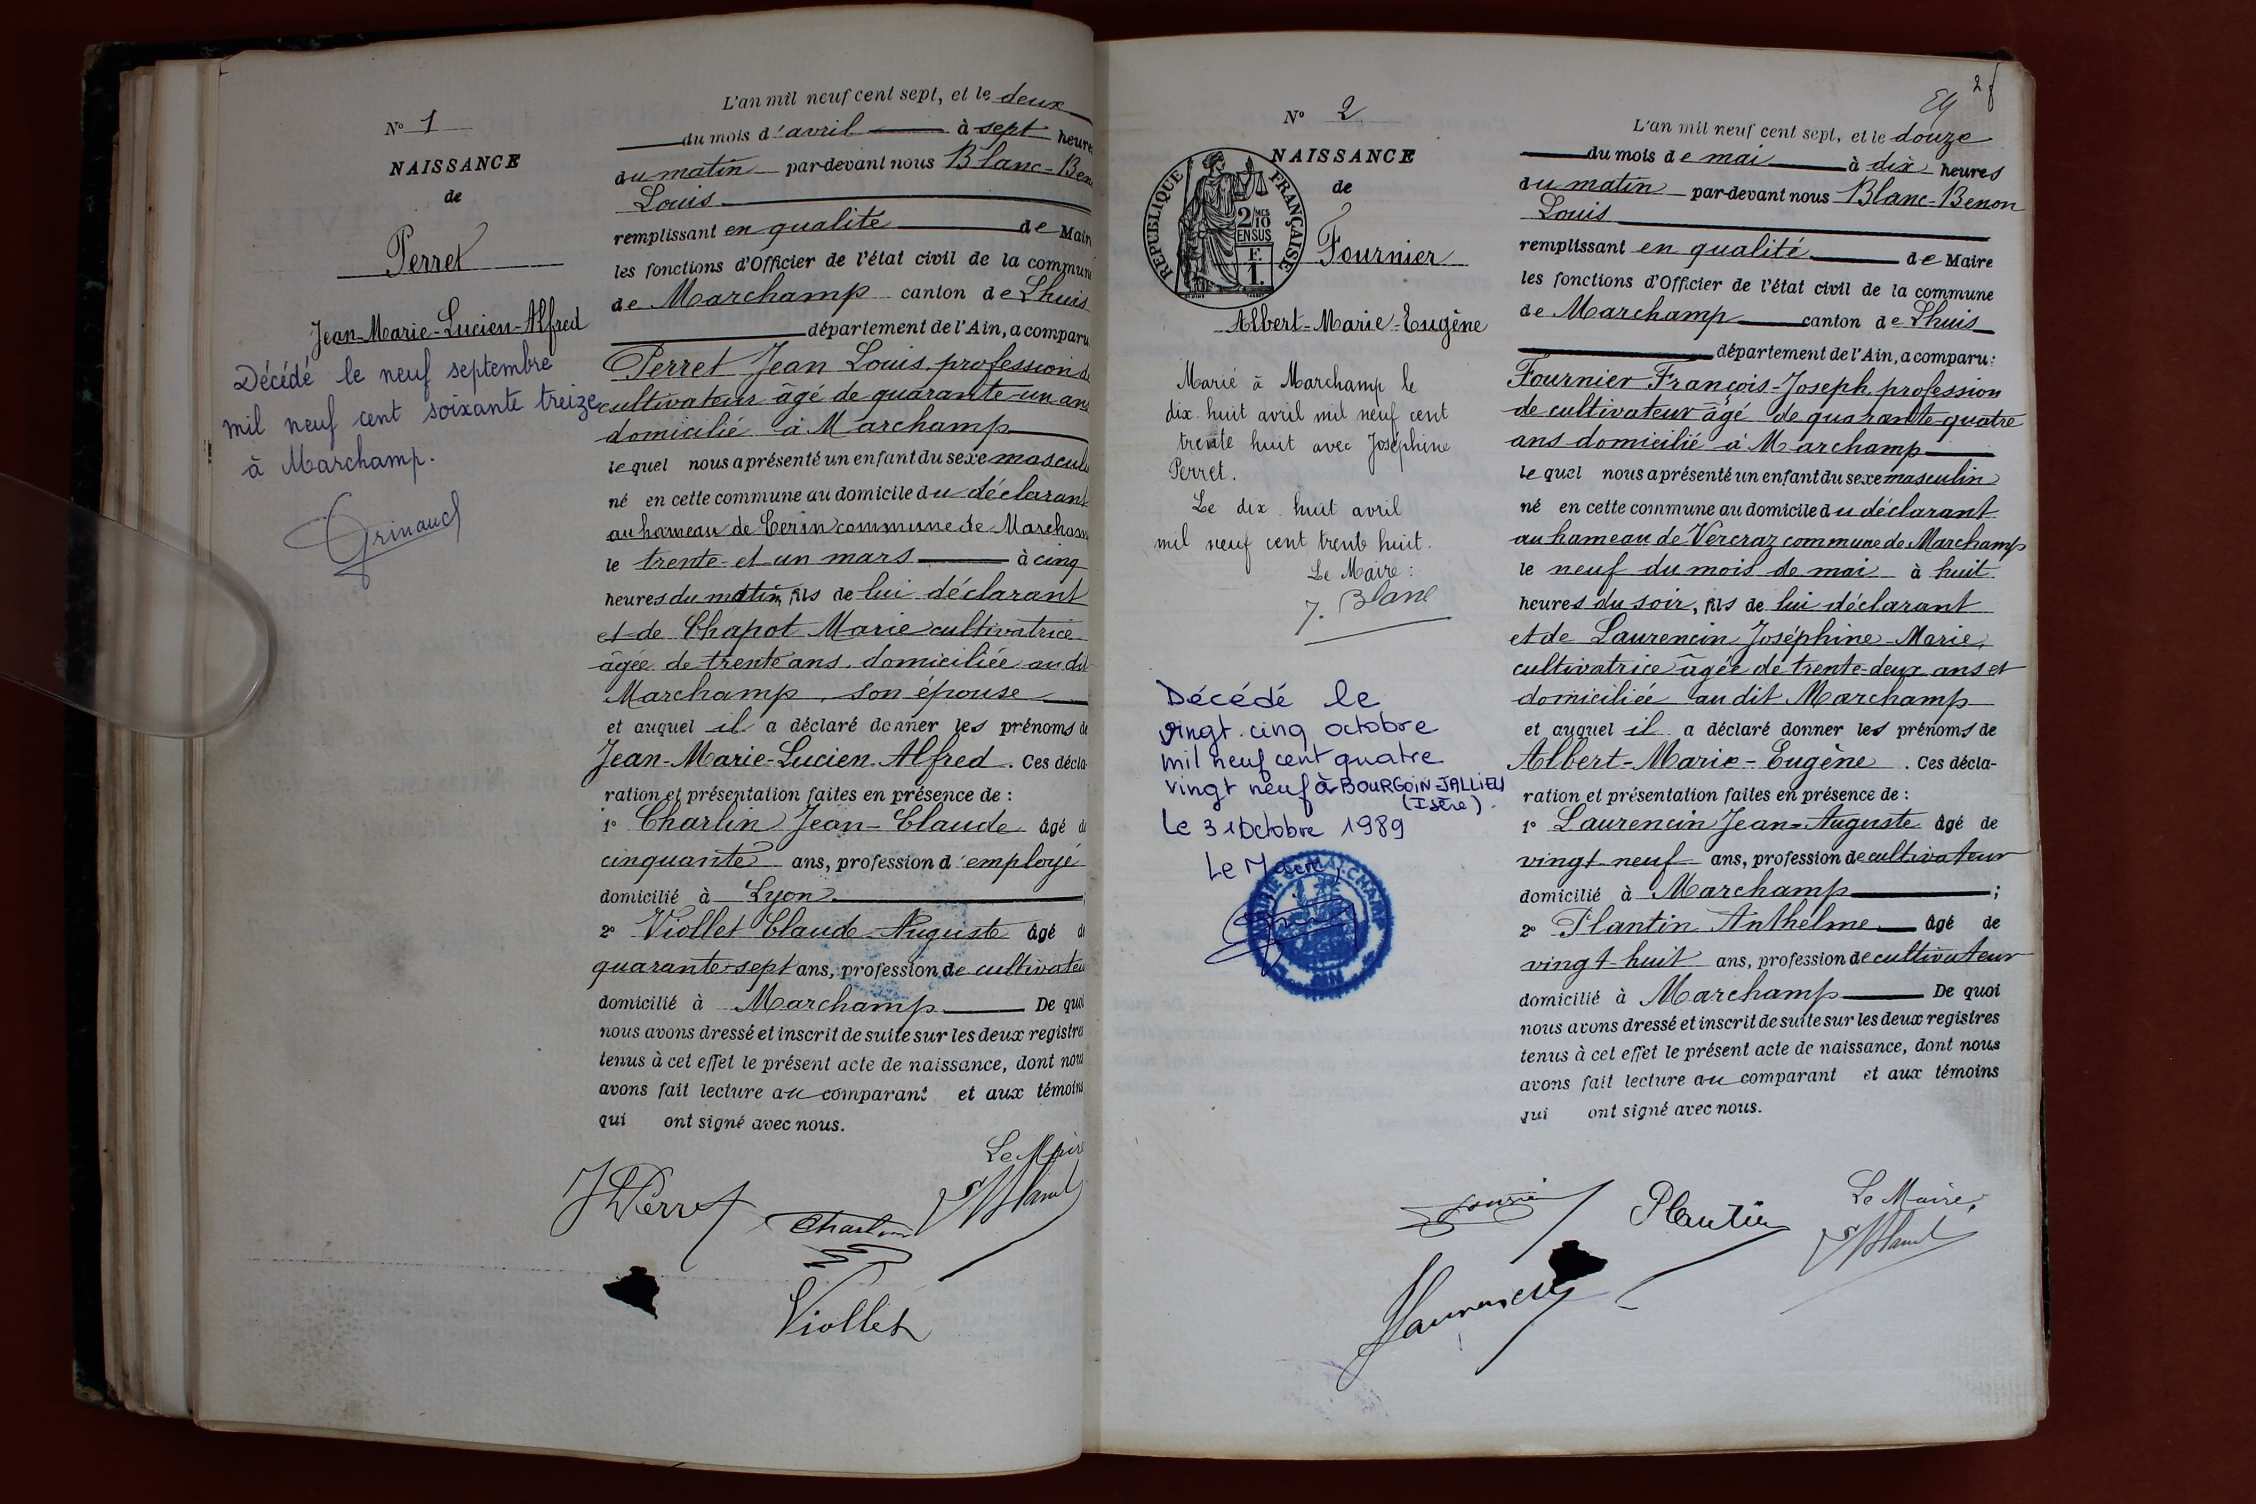 N° 1
NAISSANCE
de
Perret
Jean-Marie-Lucien-Alfred
Décédé le neuf septembre
mil neuf cent soixante treize
à Marchamp.
Grinand
L'an mil neuf cent sept, et le deux
du mois d'avril à sept heure
du matin par-devant nous Blanc-Ben
Louis
remplissant en qualité de Mair
les fonctions d'Officier de l'état civil de la commun
de Marchamp canton de Lhuis
département de l'Ain, a comparu
Perret Jean Louis, profession de
cultivateur âgé de quarante-un ans
domicilié à Marchamp
lequel nous a présenté un enfant du sexe mascul
né en cette commune au domicile du déclarant
au hameau de Cerin commune de Marcham
le trente-et-un mars à cinq
heures du matin, fils de lui déclarant
et de Chapot Marie cultivatrice
âgée de trente ans domiciliée au dit
Marchamp, son épouse
et auquel il a déclaré donner les prénoms de
Jean-Marie-Lucien-Alfred. Ces décla-
ration et présentation faites en présence de :
1° Charlin Jean-Claude âgé de
cinquante ans, profession d'employé
domicilié à Lyon
2° Viollet Claude-Auguste âgé de
quarante-sept ans, profession de cultivateu
domicilié à Marchamp De quoi
nous avons dressé et inscrit de suite sur les deux registre
tenus à cet effet le présent acte de naissance, dont nous
avons fait lecture au comparant et aux témoins
qui ont signé avec nous.
Le Maire
JLPerret
Charlin
LBlanc
Viollet
24
2
N° 2
NAISSANCE
de
RÉPUBLIQUE FRANÇAISE
2/10
EN SUS
F.
1.
Fournier
Albert-Marie-Eugène
Marié à Marchamp le
dix huit avril mil neuf cent
trente huit avec Joséphine
Perret.
Le dix huit avril
mil neuf cent trente huit.
Le Maire :
J. Blanc
Décédé le
vingt-cinq octobre
mil neuf cent quatre
vingt neuf à BOURGOIN-JALLIEU
(Isère).
Le 31 Octobre 1989
Le Maire,
MAIRIE DE MARCHAMP
AIN
L'an mil neuf cent sept, et le douze
du mois de mai à dix heures
du matin par-devant nous Blanc-Benon
Louis
remplissant en qualité de Maire
les fonctions d'Officier de l'état civil de la commune
de Marchamp canton de Lhuis
département de l'Ain, a comparu :
Fournier François-Joseph, profession
de cultivateur âgé de quarante-quatre
ans domicilié à Marchamp
lequel nous a présenté un enfant du sexe masculin
né en cette commune au domicile du déclarant
au hameau de Vercraz commune de Marchamp
le neuf du mois de mai à huit
heures du soir, fils de lui déclarant
et de Laurencin Joséphine-Marie,
cultivatrice âgée de trente-deux ans et
domiciliée au dit Marchamp
et auquel il a déclaré donner les prénoms de
Albert-Marie-Eugène. Ces décla-
ration et présentation faites en présence de :
1° Laurencin Jean-Auguste âgé de
vingt-neuf ans, profession de cultivateur
domicilié à Marchamp ;
2° Plantin Anthelme âgé de
vingt-huit ans, profession de cultivateur
domicilié à Marchamp De quoi
nous avons dressé et inscrit de suite sur les deux registres
tenus à cet effet le présent acte de naissance, dont nous
avons fait lecture au comparant et aux témoins
qui ont signé avec nous.
Le Maire,
Fournier
Plantin
LBlanc
Laurencin